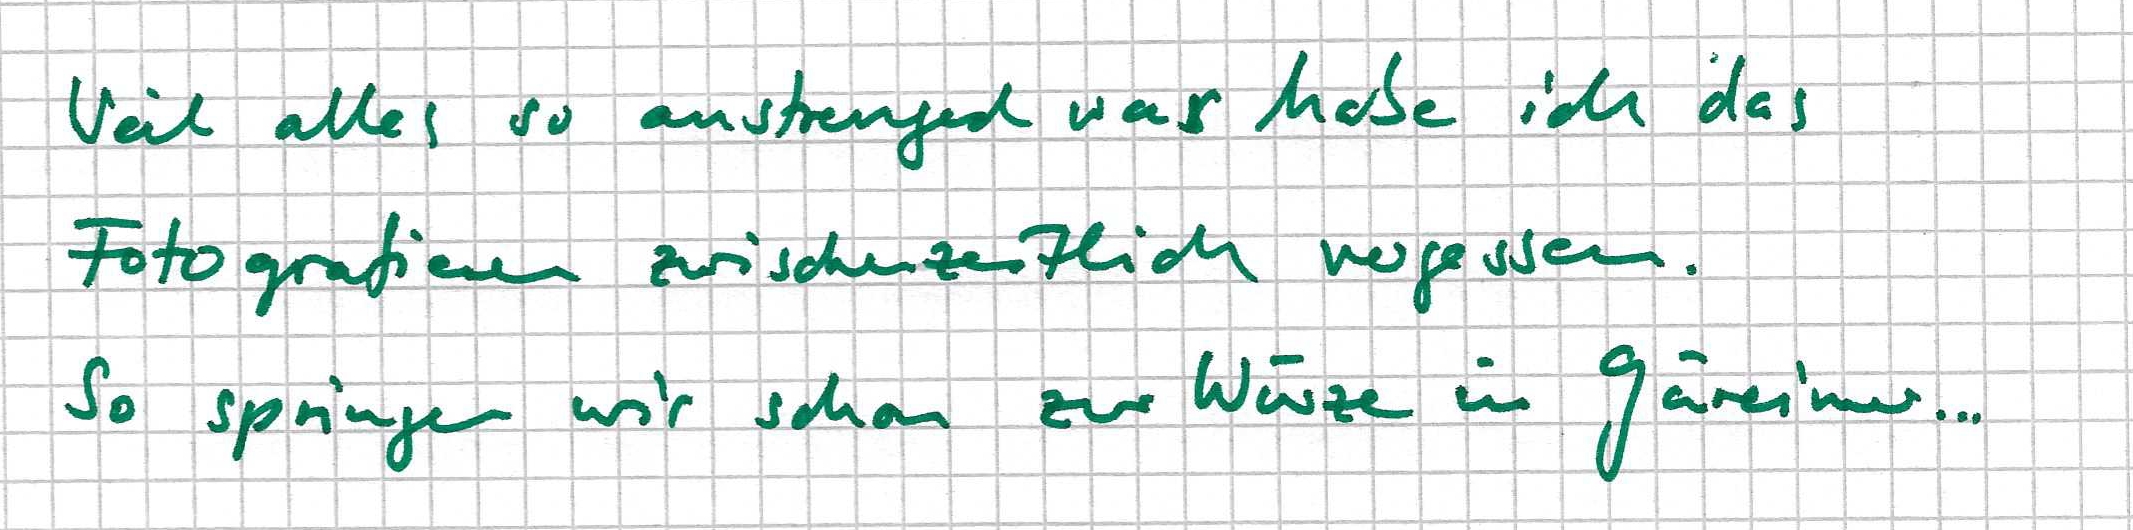 Weil alles so anstrengend war habe ich das
Fotografieren zwischenzeitlich vergessen.
So springen wir schon zur Würze im Gäreimer...